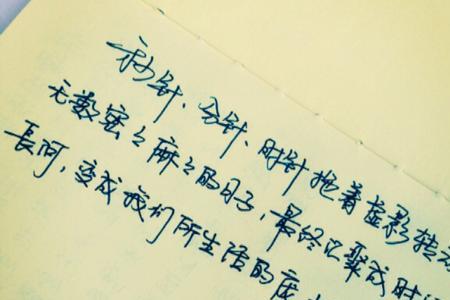 秒针、分针、时针抱着虚影转动
无数密々麻々的日子,最终汇聚成时
长河,变成我们所生活的度